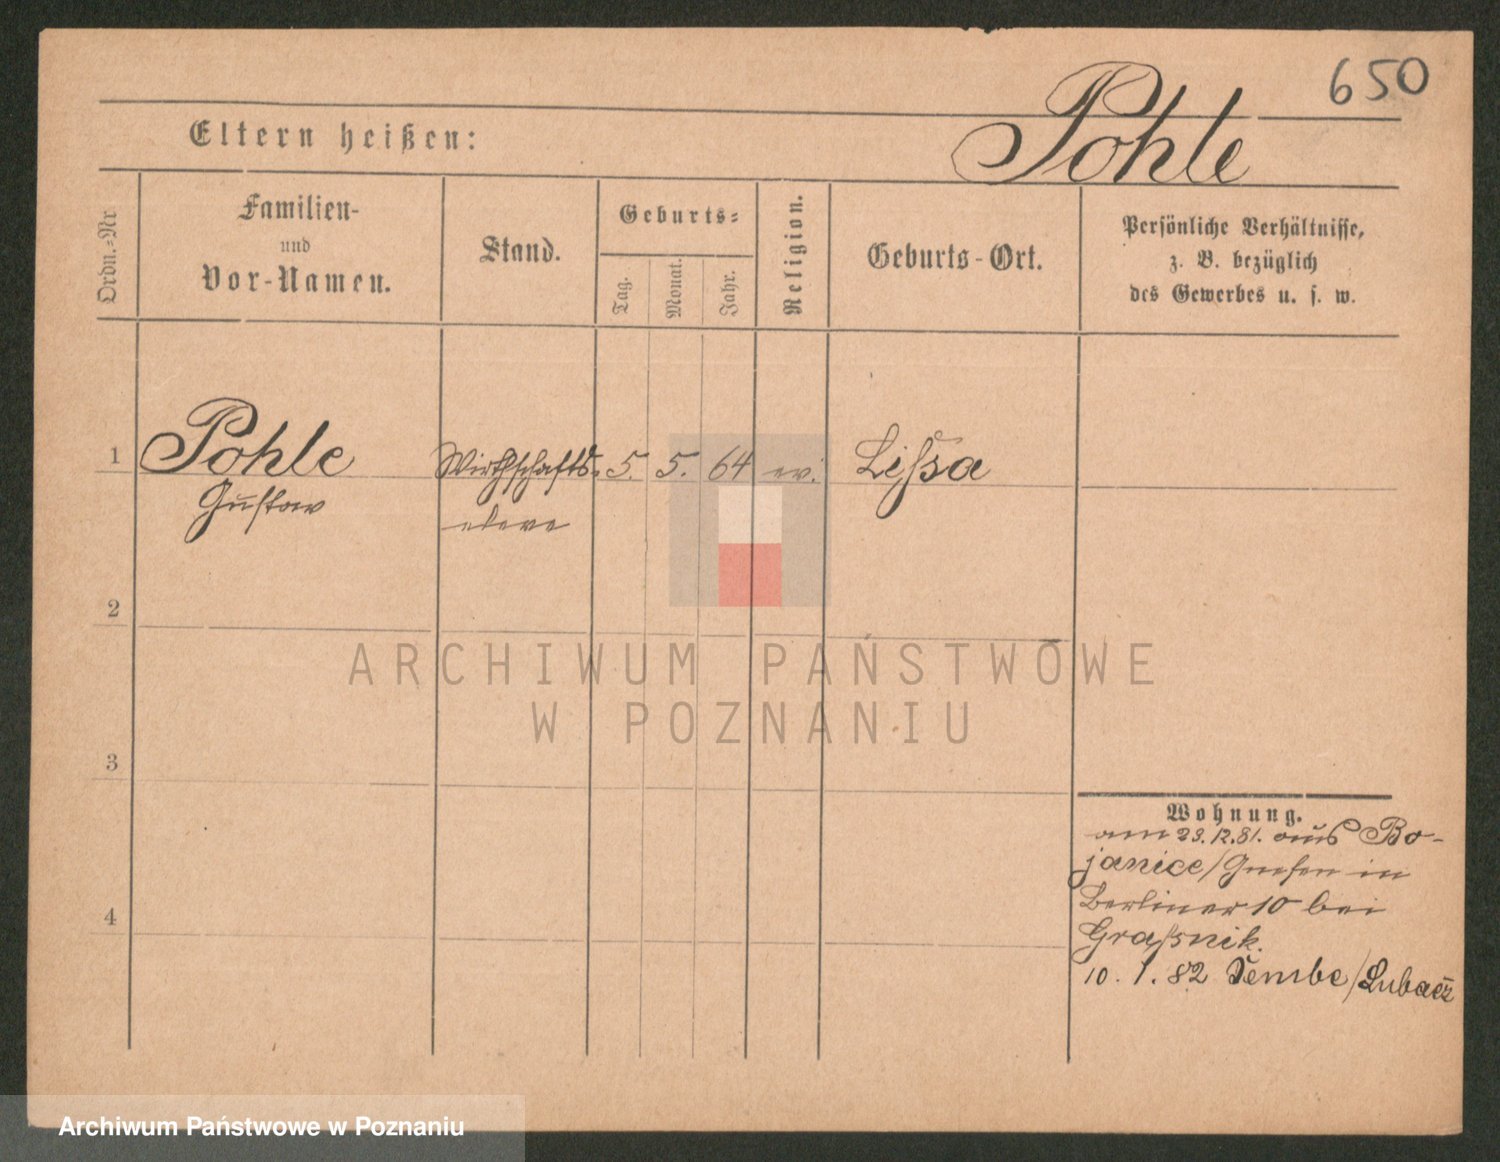 650
Pohle
Eltern heißen:
Ordn.=Nr
Familien-
und
Vor-Namen.
Stand.
Geburts=
Tag.
Monat.
Jahr.
Religion.
Geburts-Ort.
Persönliche Verhältnisse,
z. B. bezüglich
des Gewerbes u. s. w.
1 Pohle Wirthschafts- 5. 5. 64 ev. Lissa
Gustav eleve
2
3
4
ARCHIWUM PAŃSTWOWE
W POZNANIU
Wohnung.
am 23.12.81. aus Bo-
janice/Gnesen in
Berliner 10 bei
Graßnik.
10. 1. 82
Archiwum Państwowe w Poznaniu